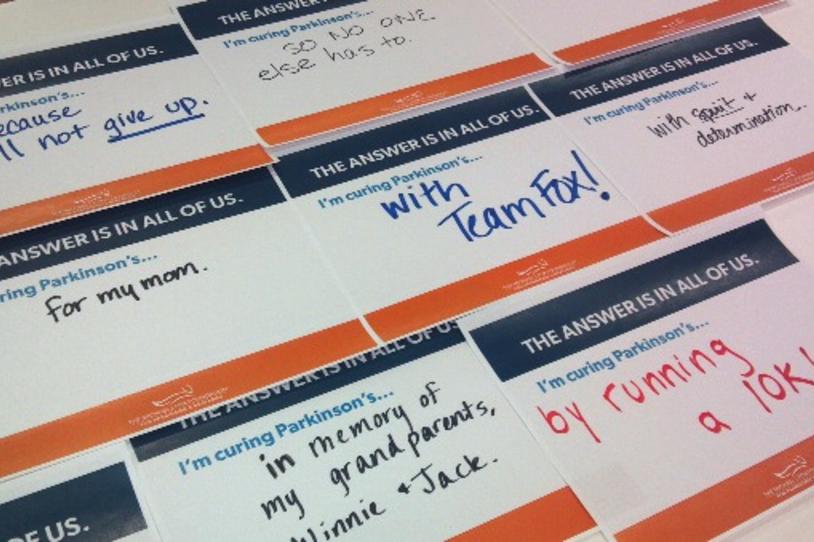 THE ANSWER IS IN ALL OF US.
I'm curing Parkinson's...
SO NO ONE
else has to.
ER IS IN ALL OF US.
rkinson's...
ecause
ll not give up.
THE ANSWER IS IN ALL OF US.
I'm curing Parkinson's...
with Team Fox!
THE ANSWER IS IN ALL OF US.
I'm curing Parkinson's...
with spirit +
determination.
ANSWER IS IN ALL OF US.
ring Parkinson's...
For my mom.
THE ANSWER IS IN ALL OF US.
I'm curing Parkinson's...
in memory of
my grandparents,
Winnie + Jack.
THE ANSWER IS IN ALL OF US.
I'm curing Parkinson's...
by running
a 10K!
OF US.